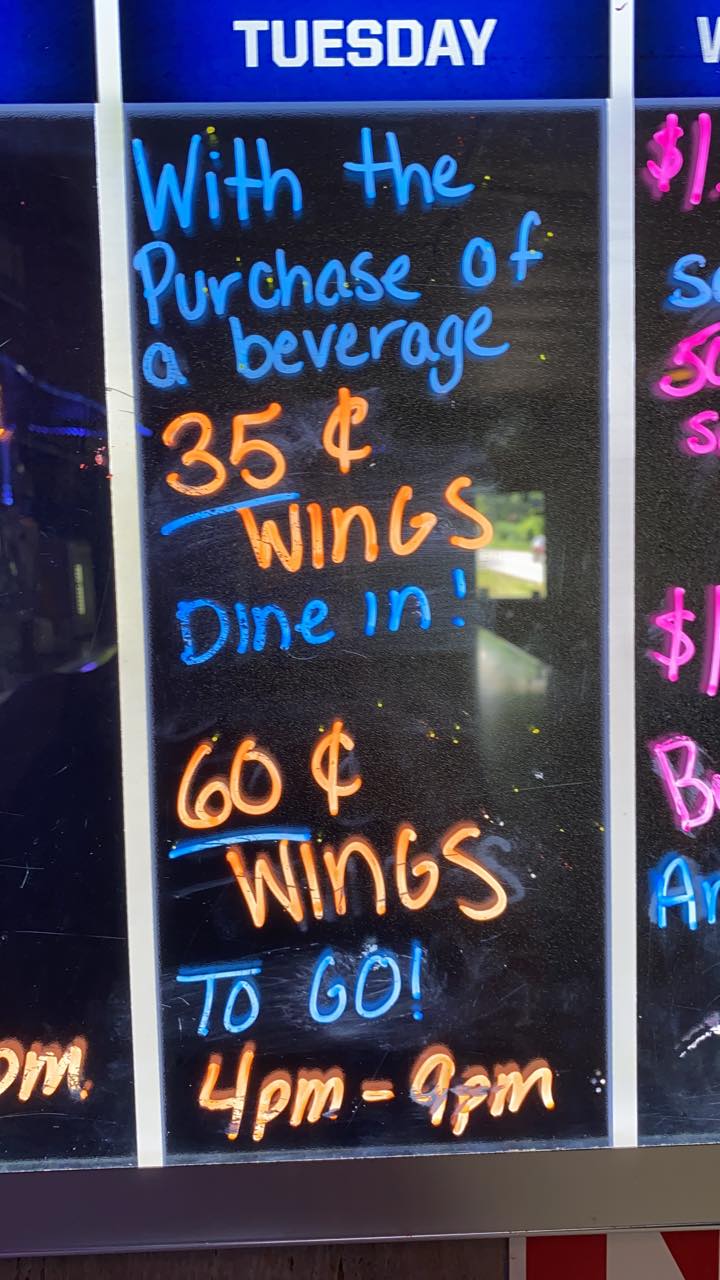 TUESDAY
With the
Purchase of
a beverage
35 ¢
WINGS
Dine in!
60 ¢
WINGS
TO GO!
4pm - 9pm
pm.
$1
$1